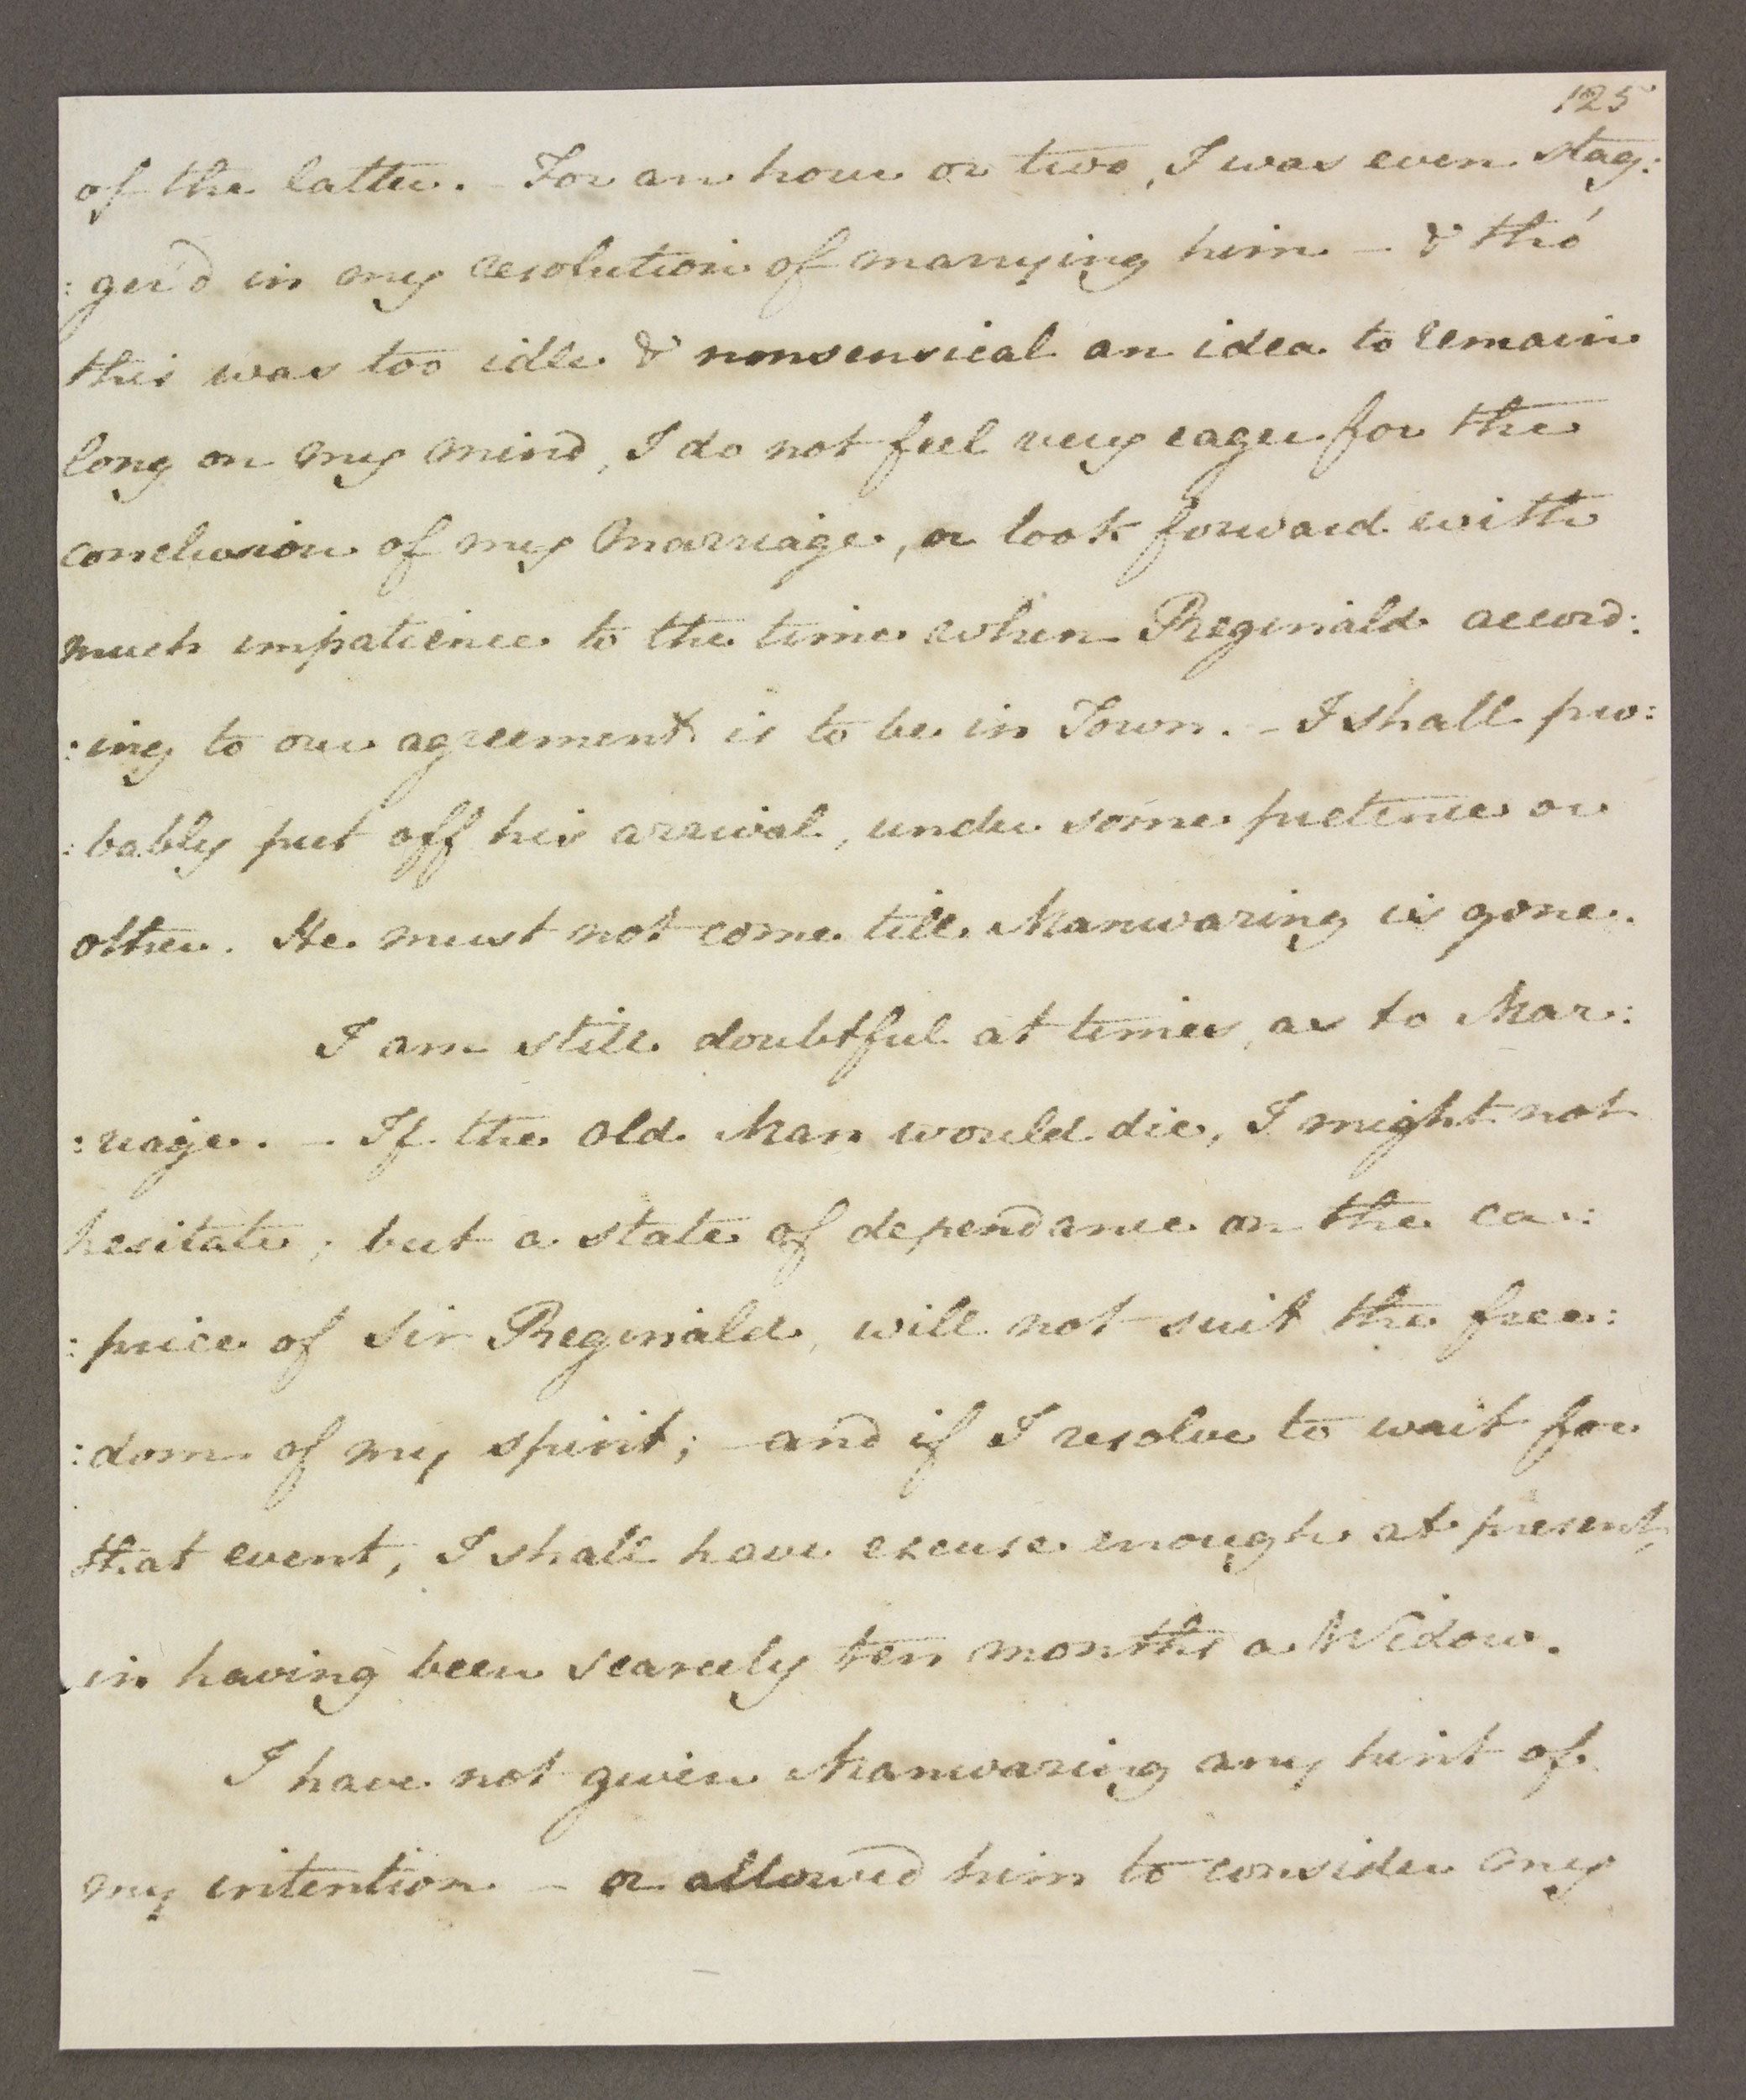 125
of the latter. - For an hour or two, I was even stag:
:ger'd in my resolution of marrying him - & tho'
this was too idle & nonsensical an idea to remain
long on my mind, I do not feel very eager for the
conclusion of my Marriage, or look forward with
much impatience to the time when Reginald accord:
:ing to our agreement is to be in Town. - I shall pro:
:bably put off his arrival, under some pretence or
other. He must not come till Manwaring is gone.
I am still doubtful at times, as to Mar:
:riage. - If the old Man would die, I might not
hesitate; but a state of dependance on the ca:
:price of Sir Reginald, will not suit the free:
:dom of my spirit; - and if I resolve to wait for
that event, I shall have excuse enough at present,
in having been scarcely ten months a Widow.
I have not given Manwaring any hint of
my intention - or allowed him to consider my